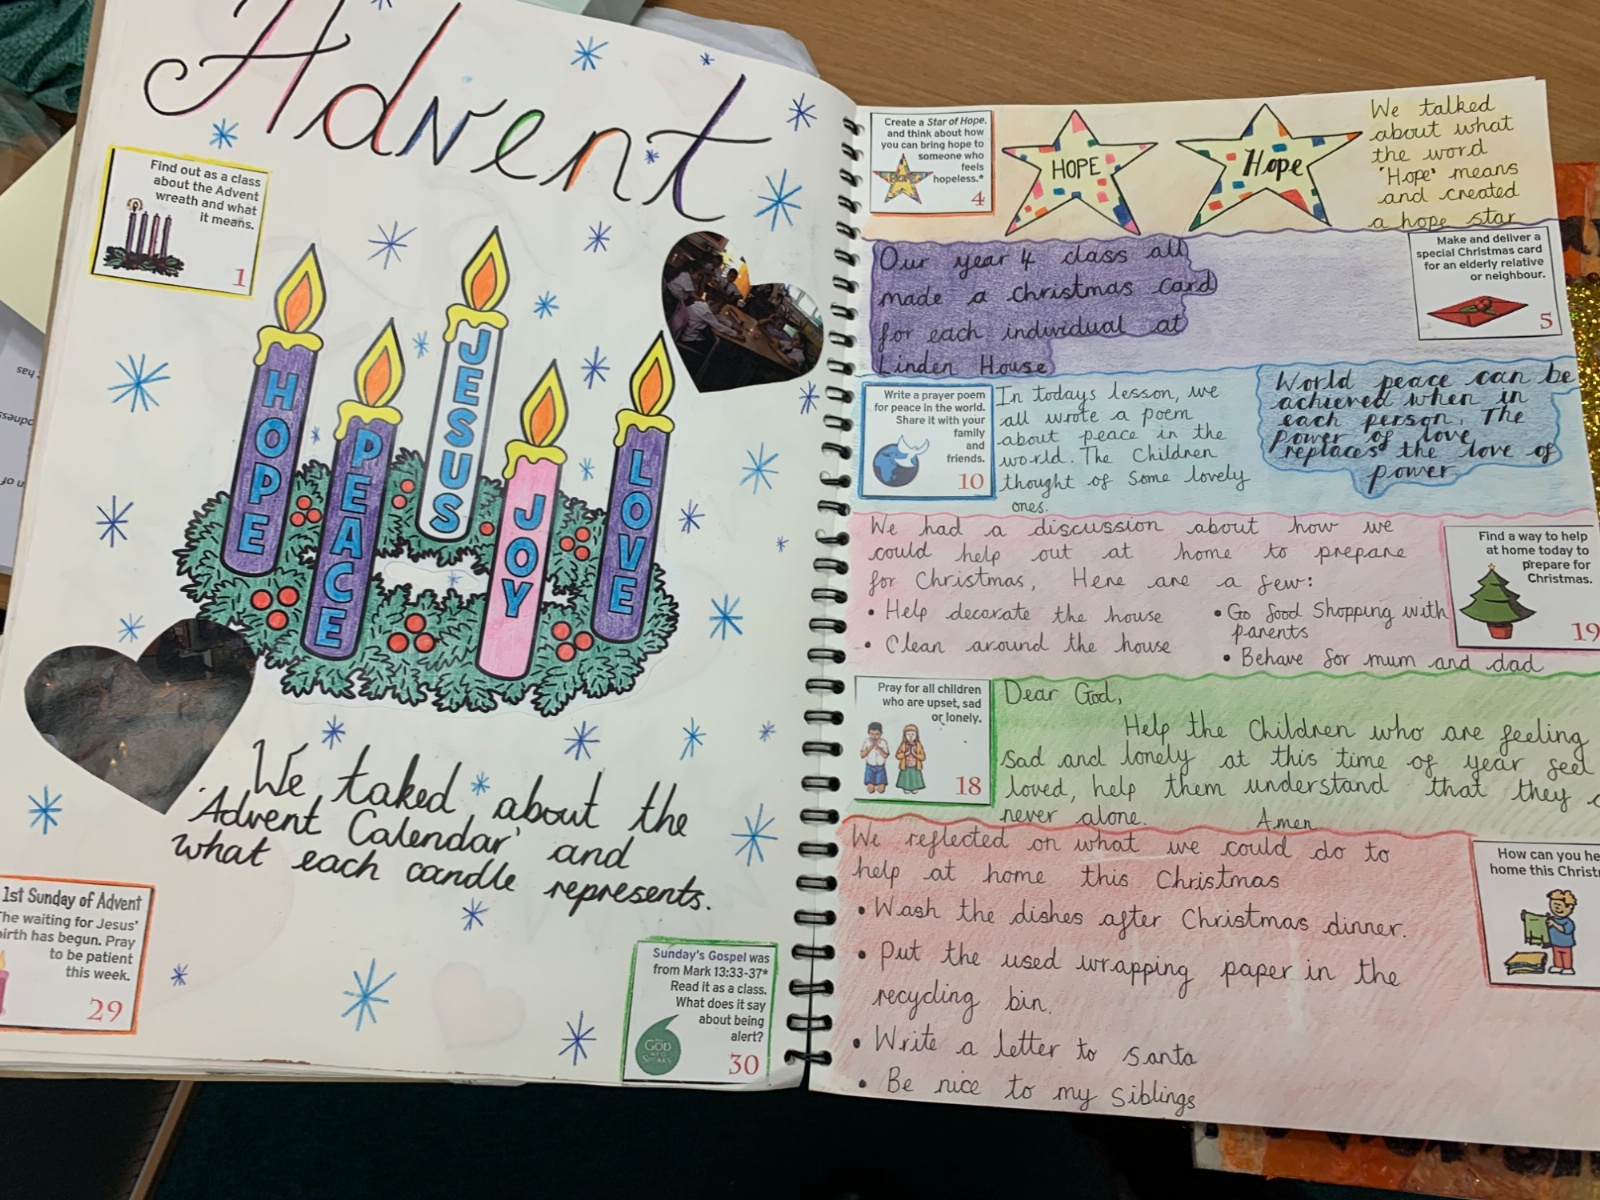 Advent
Find out as a class
about the Advent
wreath and what
it means.
1
HOPE
PEACE
JESUS
JOY
LOVE
We taked about the
'Advent Calendar' and
what each candle represents.
1st Sunday of Advent
The waiting for Jesus'
birth has begun. Pray
to be patient
this week.
29
Sunday's Gospel was
from Mark 13:33-37*
Read it as a class.
What does it say
about being
alert?
GOD
WHO
SPEAKS
30
Create a Star of Hope,
and think about how
you can bring hope to
someone who
feels
hopeless.*
4
HOPE
Hope
We talked
about what
the word
'Hope' means
and created
a hope star
Our year 4 class all
made a christmas card
for each individual at
Linden House
Make and deliver a
special Christmas card
for an elderly relative
or neighbour.
5
Write a prayer poem
for peace in the world.
Share it with your
family
and
friends.
10
In todays lesson, we
all wrote a poem
about peace in the
world. The Children
thought of some lovely
ones.
World peace can be
achieved when in
each person. The
power of love
replaces the love of
power
We had a discussion about how we
could help out at home to prepare
for Christmas, Here are a few:
• Help decorate the house
• Clean around the house
• Go food shopping with
parents
• Behave for mum and dad
Find a way to help
at home today to
prepare for
Christmas.
19
Pray for all children
who are upset, sad
or lonely.
18
Dear God,
Help the Children who are feeling
sad and lonely at this time of year feel
loved, help them understand that they
never alone.
Amen
We reflected on what we could do to
help at home this Christmas
• Wash the dishes after Christmas dinner.
• Put the used wrapping paper in the
recycling bin.
• Write a letter to Santa
• Be nice to my Siblings
How can you he
home this Christ